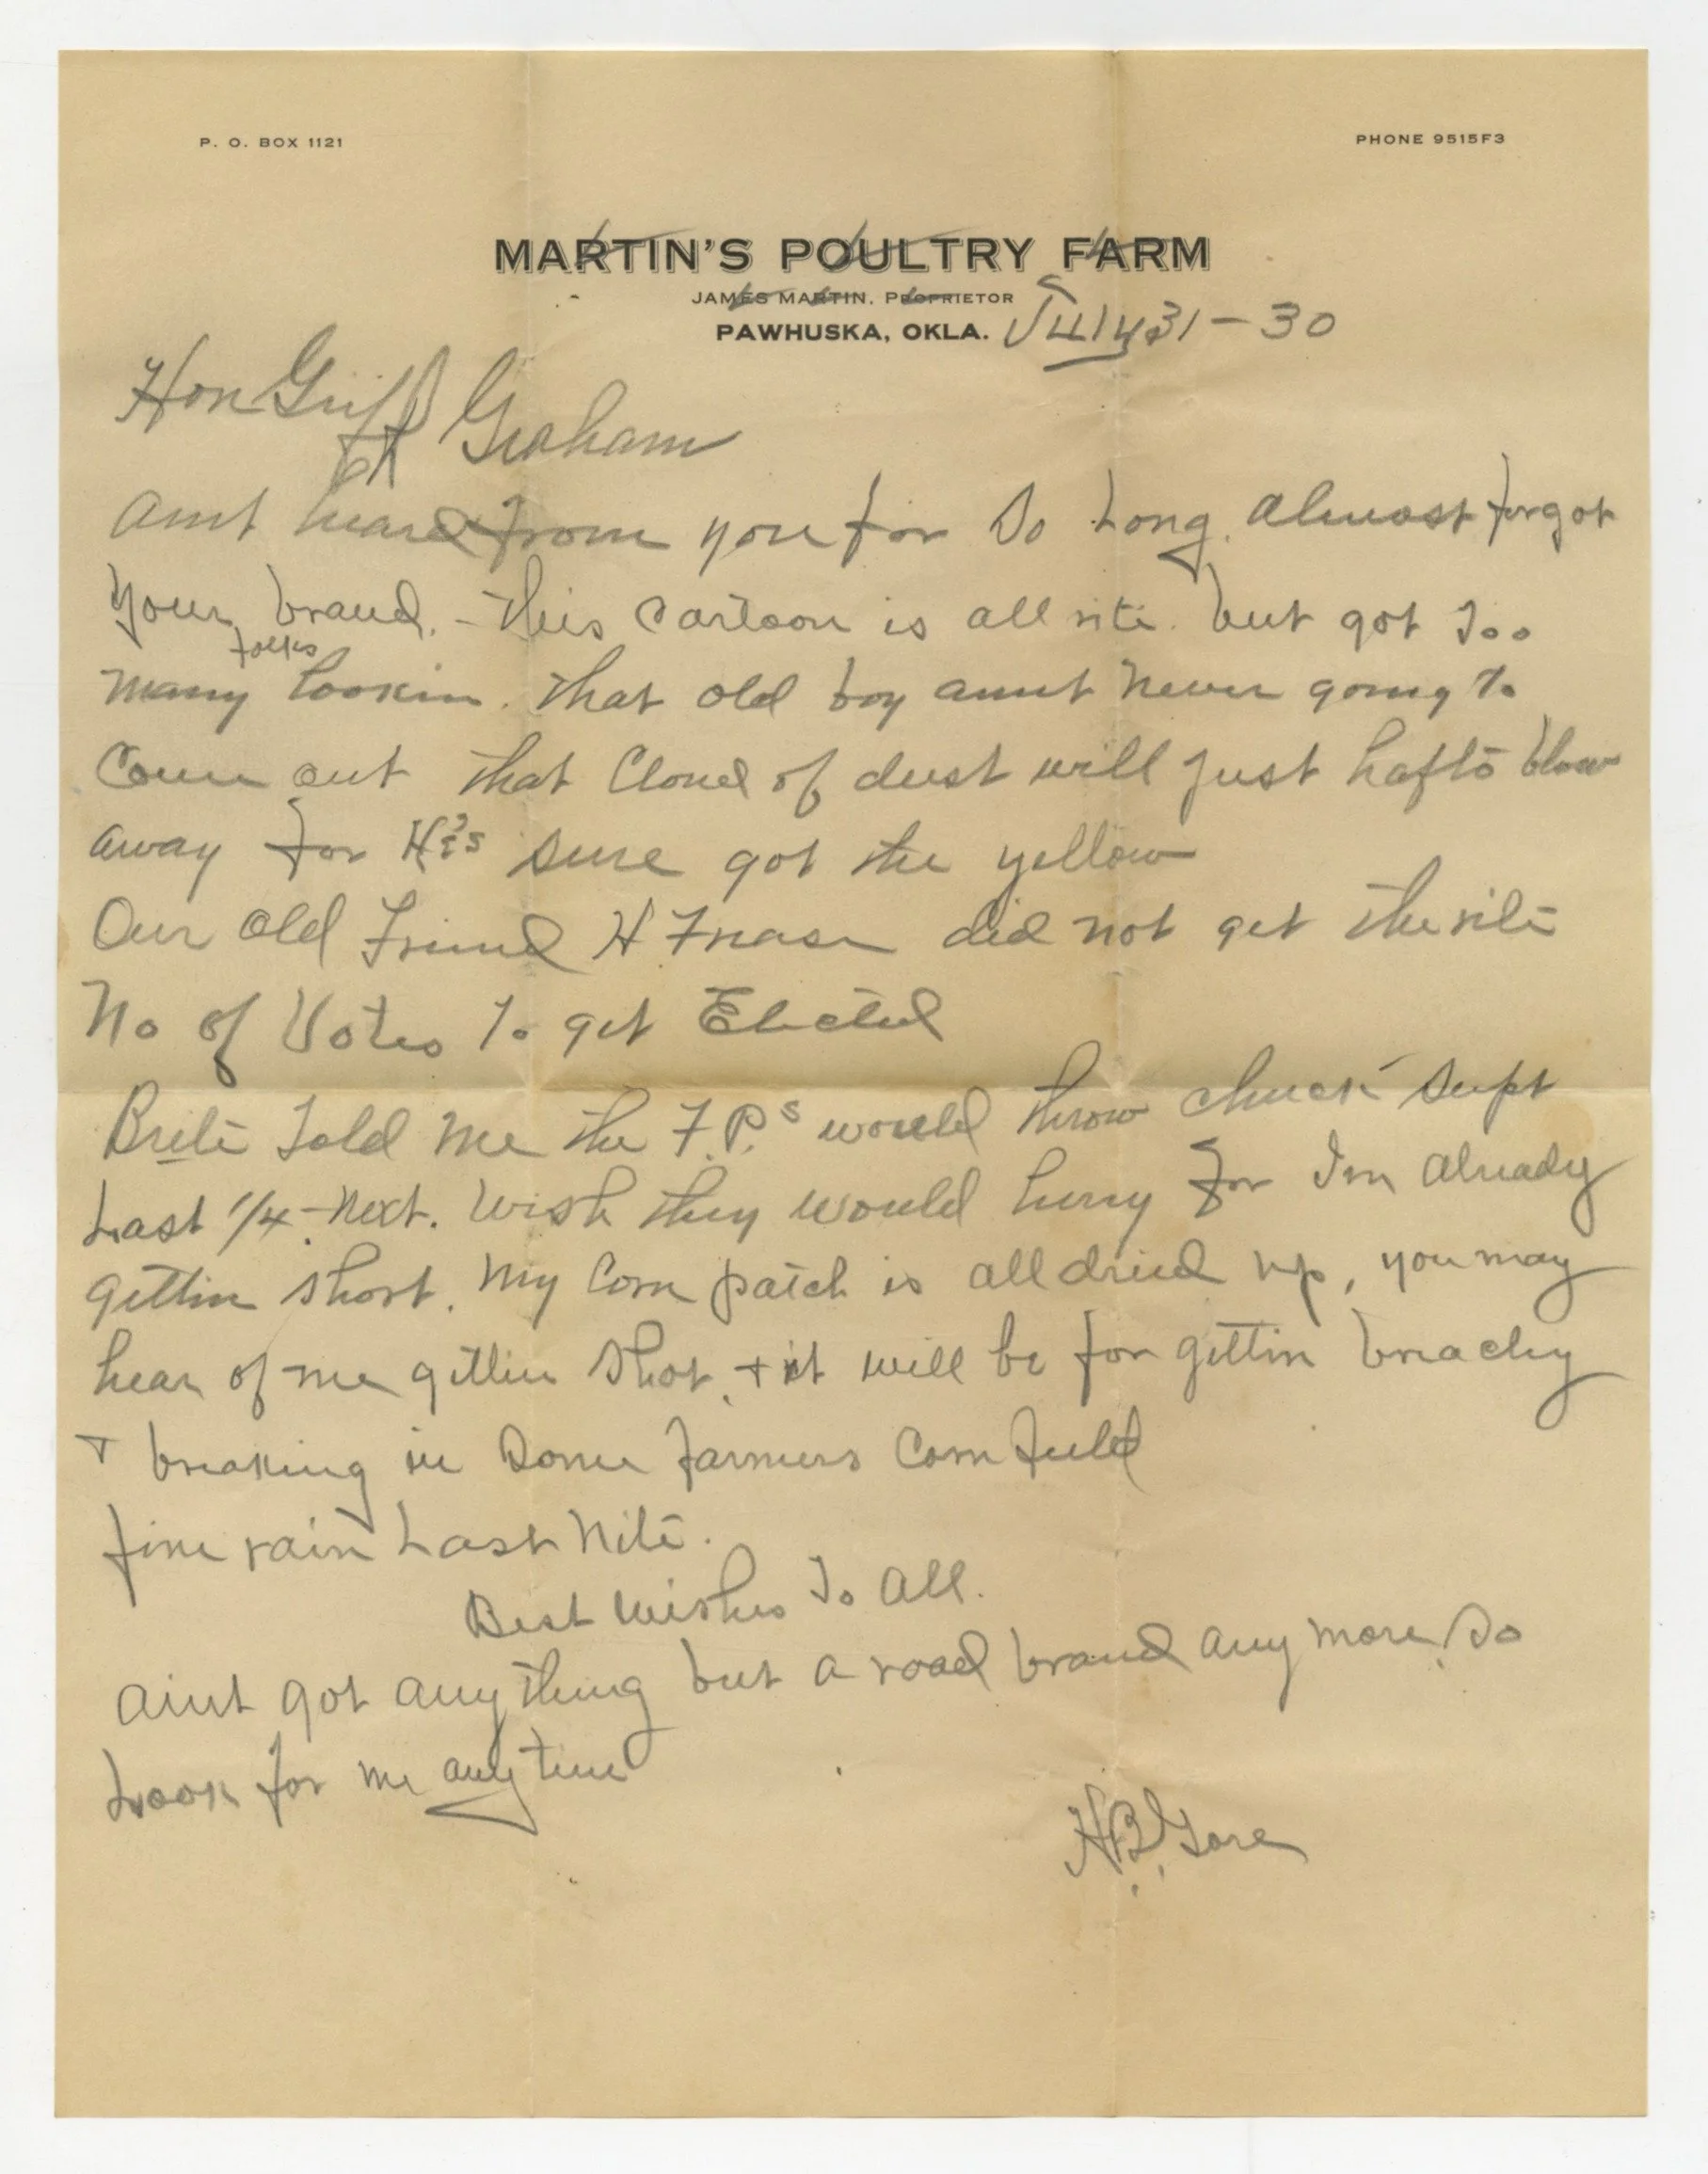 P. O. BOX 1121
PHONE 9515F3
MARTIN'S POULTRY FARM
JAMES MARTIN, PROPRIETOR
PAWHUSKA, OKLA. July 31-30
Hon Griff Graham
aint heard from you for so Long. almost forgot
your brand. - This cartoon is all rite. but got Too
many folks lookin. That old boy aint never going to
come out that cloud of dust will just hafto blow
away for He's sure got the yellow
Our old Friend H Fraser did not get the rite
No of Votes To get Elected
Brite Told me the F.P.s would throw chuck Sept
Last 1/4 - Next. Wish they would hurry for Im already
gettin short. My Corn patch is all dried up, you may
hear of me gittin shot, + it will be for gittin breachy
+ breaking in some farmers Corn field
fine rain Last Nite.
Best wishes To all.
aint got anything but a road brand any more. So
Look for me any time
H.B. Gore